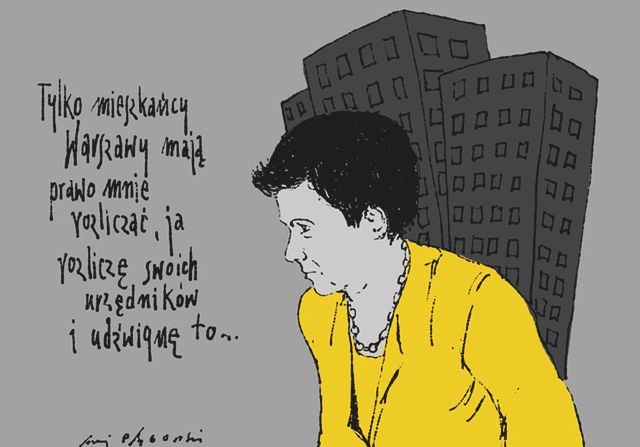 Tylko mieszkańcy
Warszawy mają
prawo mnie
rozliczać, ja
rozliczę swoich
urzędników
i udźwignę to...